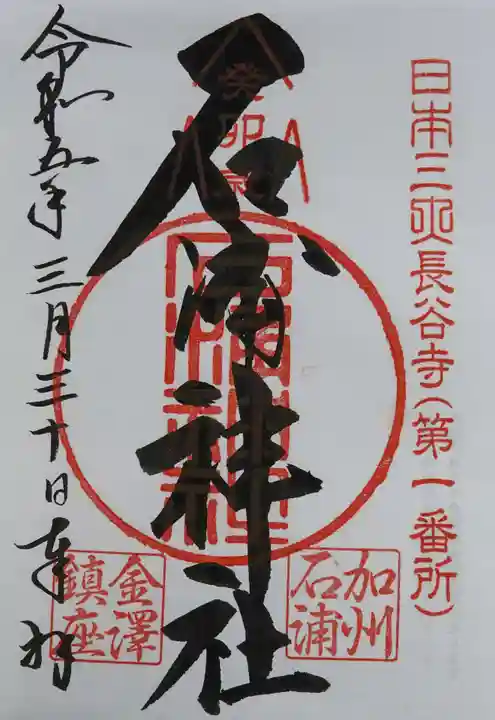 日本三大長谷寺(第一番所)
石浦神社
癸卯
加州
石浦
金澤
鎮座
令和五年三月三十日奉拝